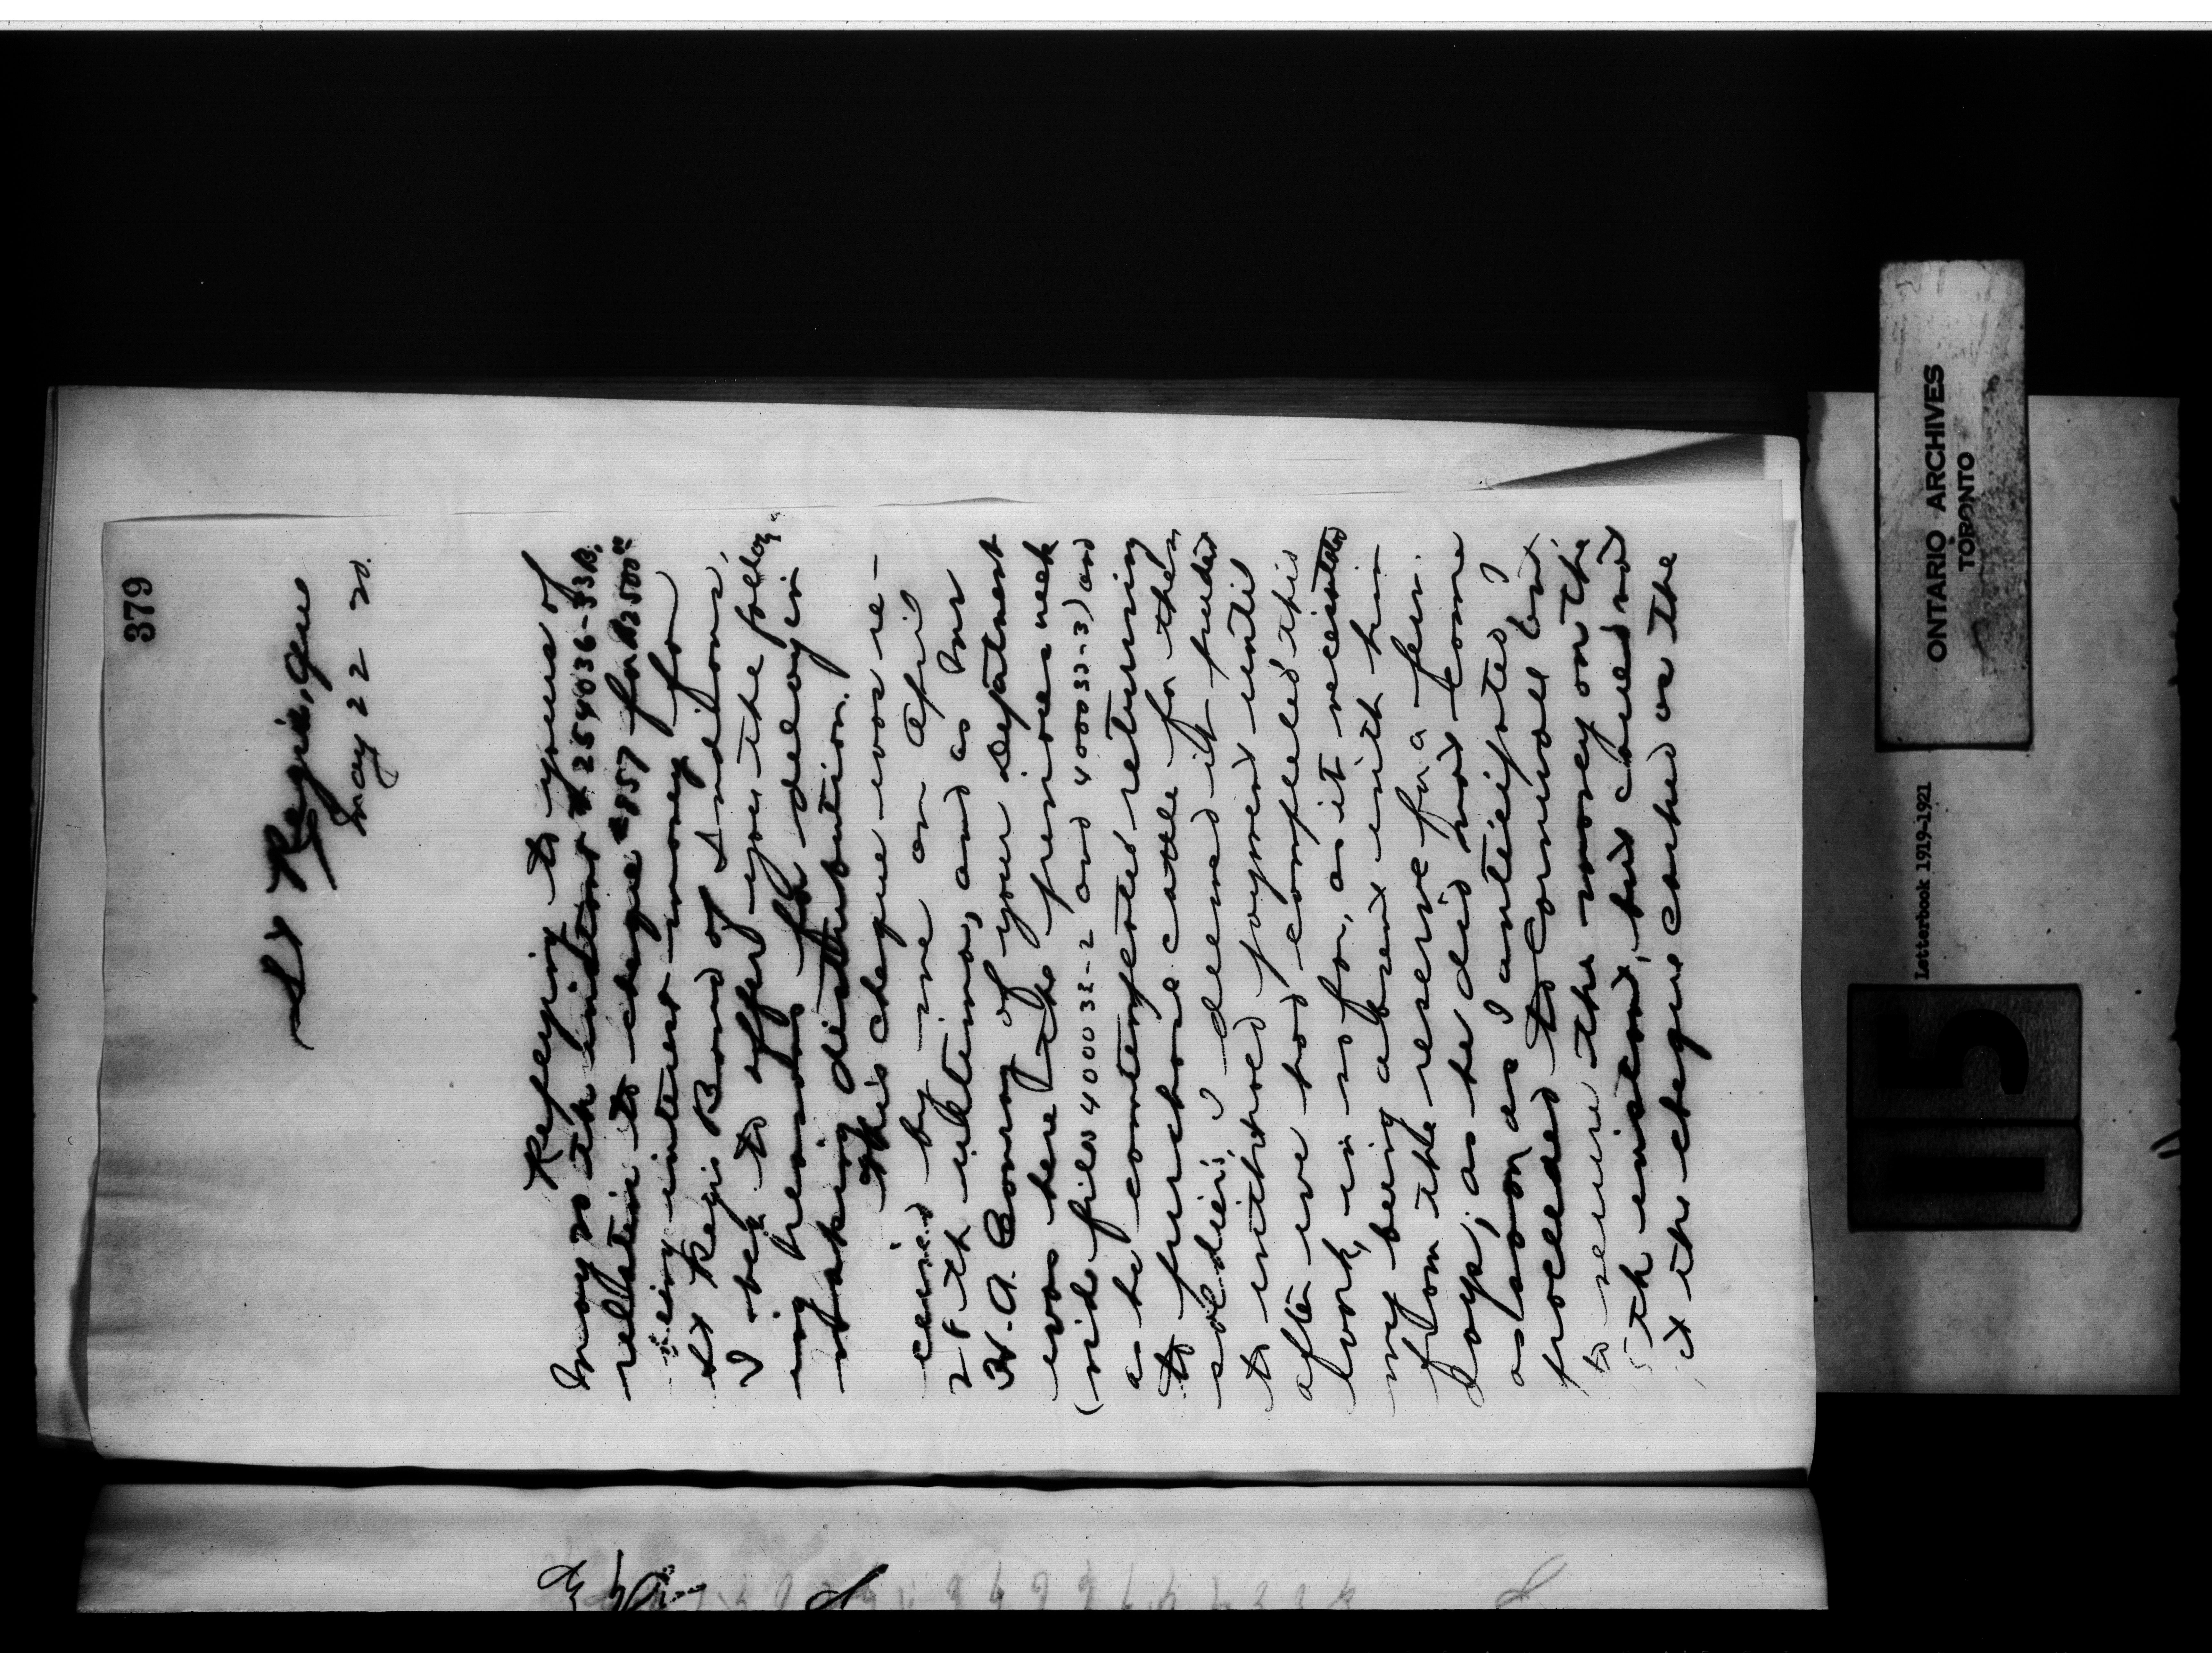 379
St Regis, Que
May 22 20.
Referring to yours of
May 20th instant # 254036-33B,
relative to cheque # 857 for $2500 00
being interest money for
St Regis Band of Indians,
I beg to offer you the follow-
ing reasons for delay in
making distribution.
This cheque was re-
ceived by me on April
28th ultimo, and as Mr
H. A. Conroy of your Department
was here the previous week
(vide files 400032-2 and 400033-3) and
as he contemplated returning
to purchase cattle for the
soldiers, I deemed it prudent
to withhold payment until
after we had completed this
work, in so far, as it necessitated
my being absent with him
from the reserve for a few
days, as he did not come
as soon as I anticipated I
proceeded to Cornwall Ont.
to secure the money on the
5th instant, but could not
get the cheque cashed as the
ONTARIO ARCHIVES
TORONTO
Letterbook 1919-1921